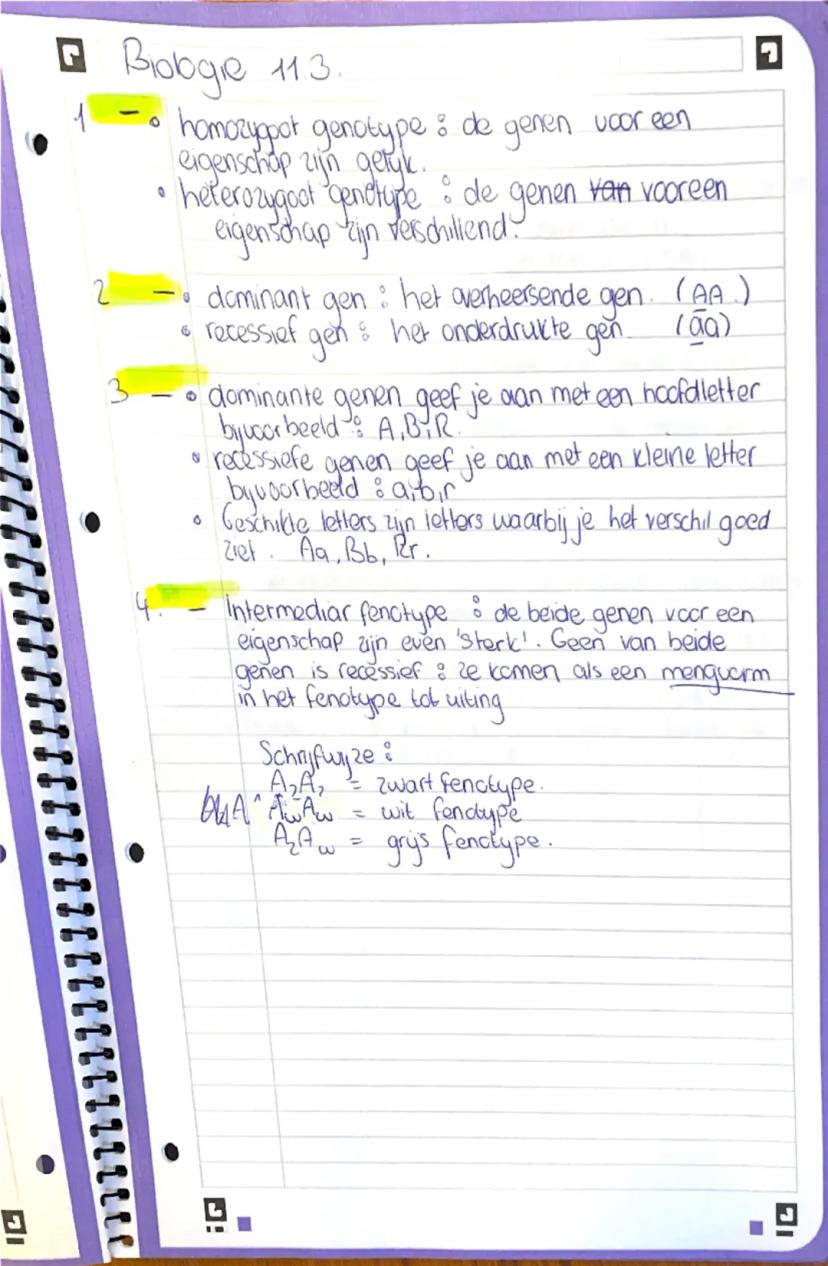 Biologie 11.3.
1 - • homozygoot genotype : de genen voor een
eigenschap zijn gelijk.
• heterozygoot genotype : de genen van voor een
eigenschap zijn verschillend.
2 - • dominant gen : het overheersende gen. (AA.)
• recessief gen : het onderdrukte gen. (aa)
3 - • dominante genen geef je aan met een hoofdletter
bijvoorbeeld : A, B, R.
• recessiefe genen geef je aan met een kleine letter
bijvoorbeeld : a, b, r
• Geschikte letters zijn letters waarbij je het verschil goed
ziet. Aa, Bb, Rr.
4. - Intermediar fenotype : de beide genen voor een
eigenschap zijn even 'sterk'. Geen van beide
genen is recessief : ze komen als een mengvorm
in het fenotype tot uiting
Schrijfwijze :
AzAz = zwart fenotype.
AwAw = wit fenotype
AzAw = grijs fenotype.